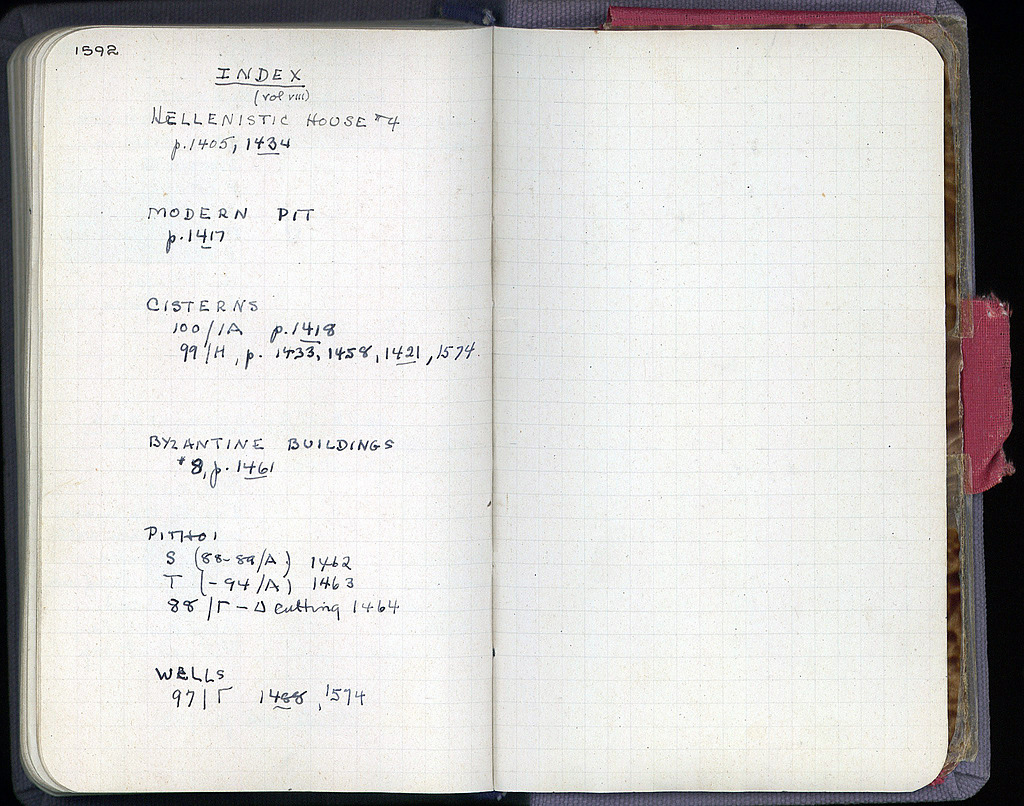 1592
INDEX
(vol viii)
HELLENISTIC HOUSE #4
p.1405, 1434
MODERN PIT
p.1417
CISTERNS
100/1A p.1418
99/H, p. 1433, 1458, 1421, 1574.
BYZANTINE BUILDINGS
#8, p. 1461
PITHOI
S (88-89/A) 1462
T (-94/A) 1463
88/Γ-Δ cutting 1464
WELLS
97/Γ 1488, 1574